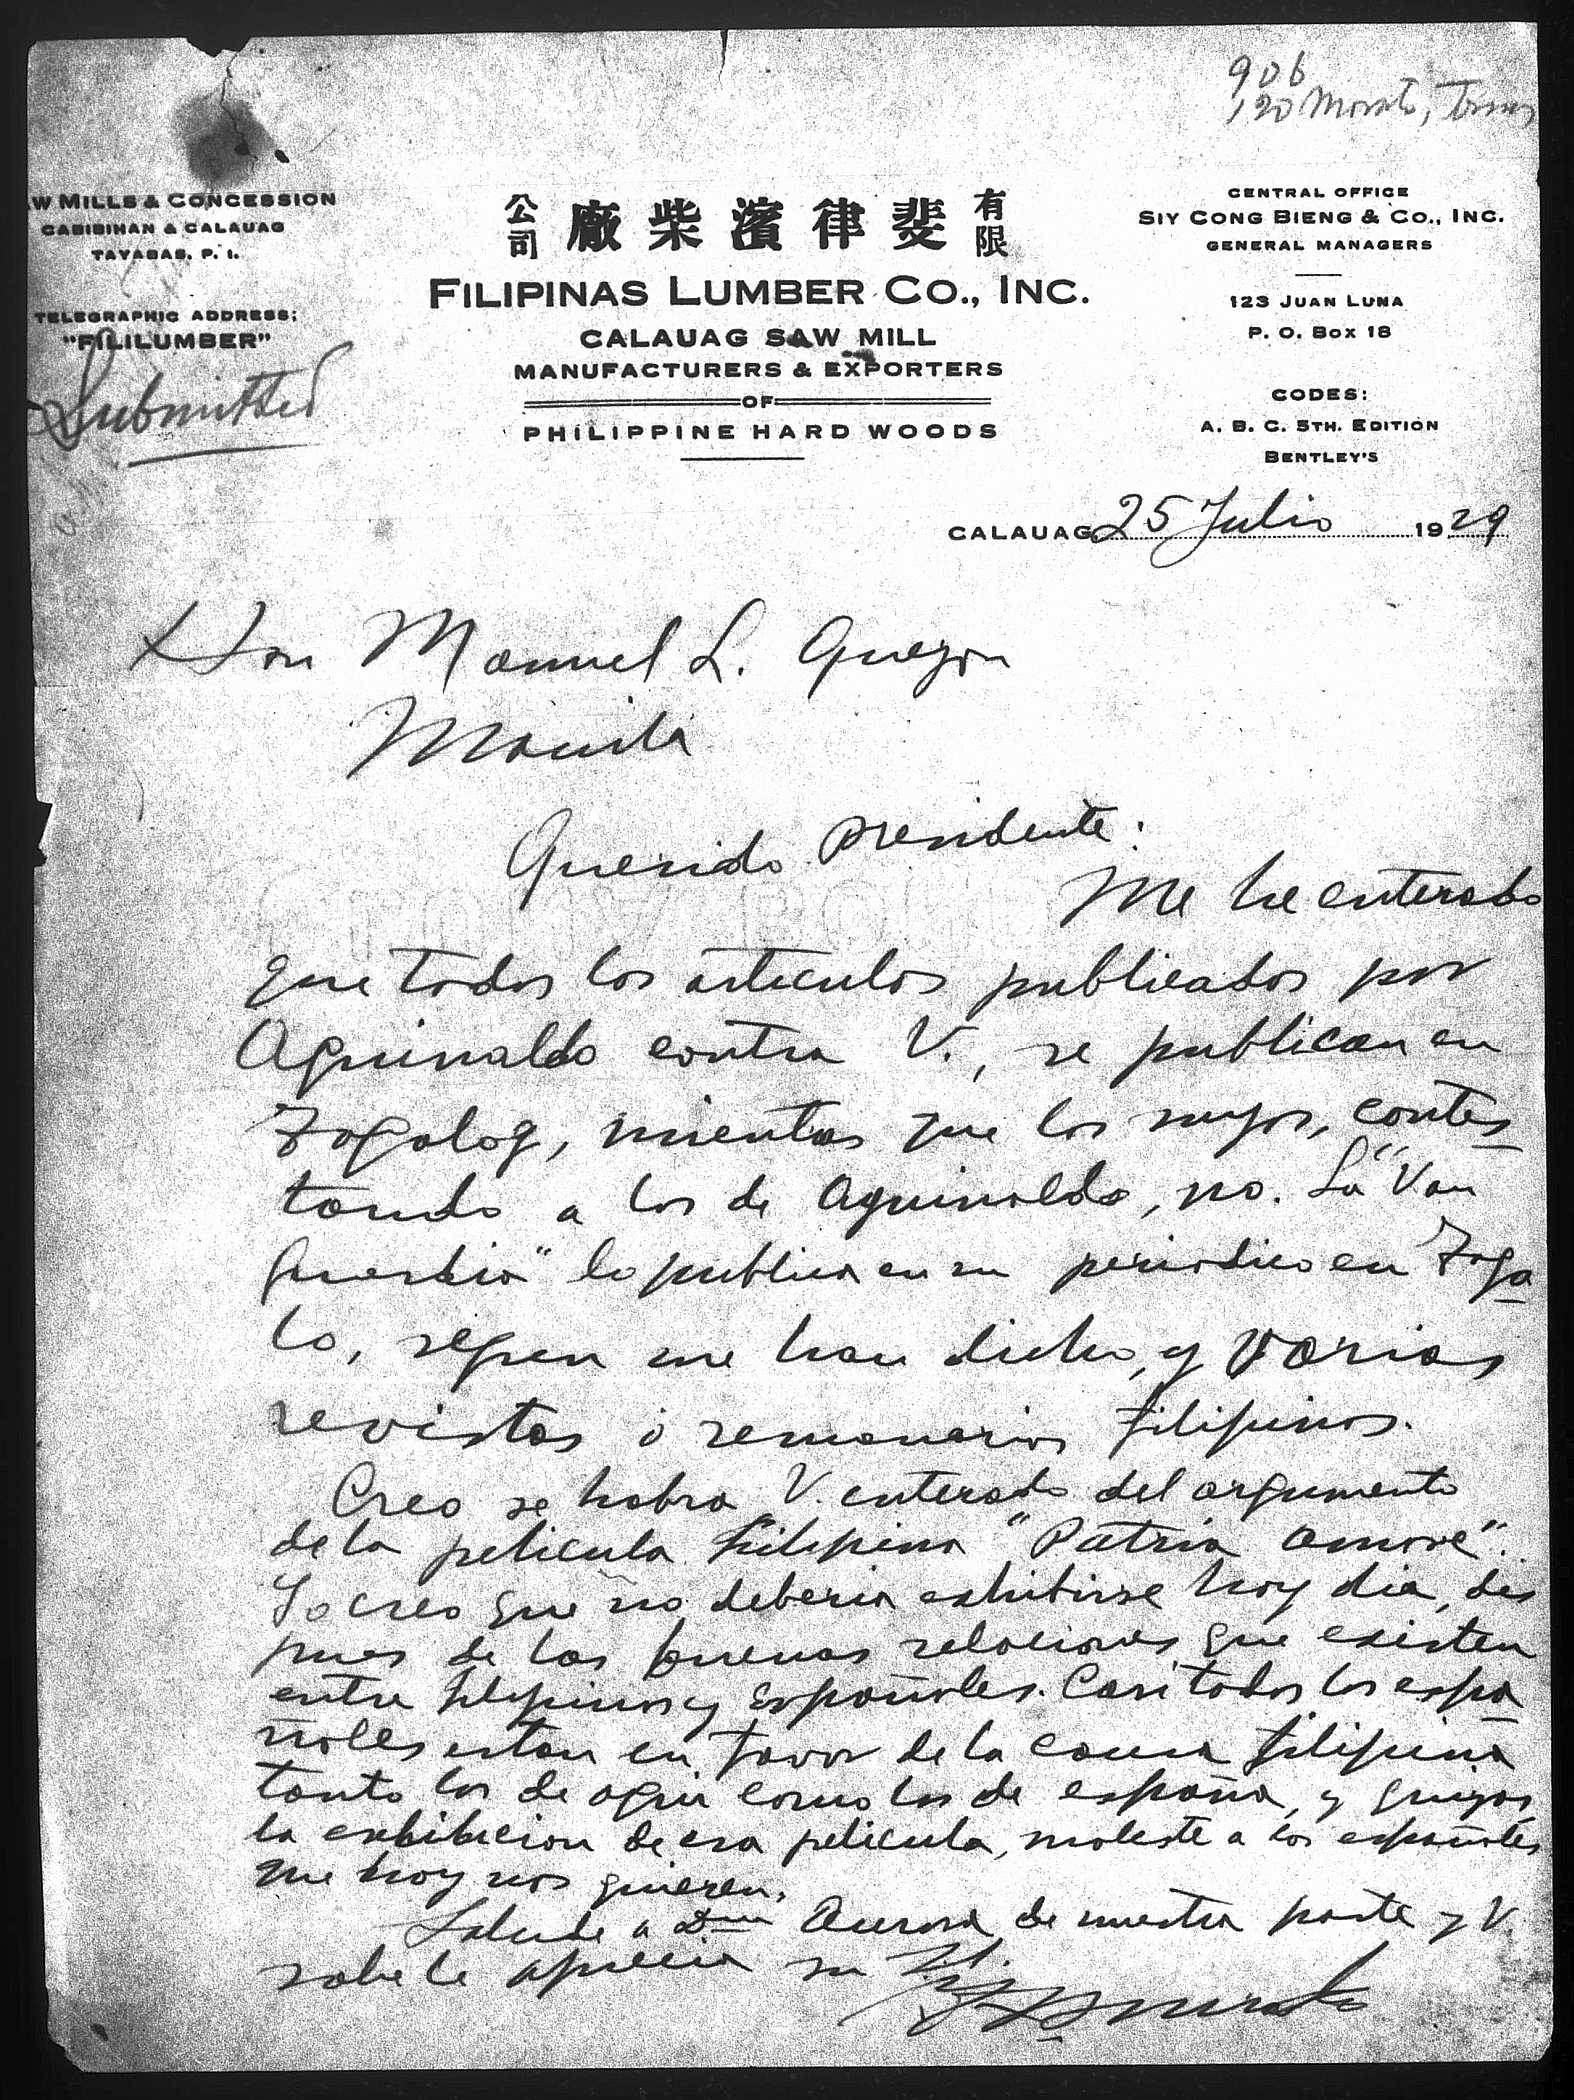 906
120 Morato, Tomas
W MILLS & CONCESSION
CABIBIHAN & CALAUAG
TAYABAS, P. I.
TELEGRAPHIC ADDRESS:
"FILILUMBER"
Submitted
公司 廠柴濱律斐 有限
FILIPINAS LUMBER CO., INC.
CALAUAG SAW MILL
MANUFACTURERS & EXPORTERS
OF
PHILIPPINE HARD WOODS
CENTRAL OFFICE
SIY CONG BIENG & CO., INC.
GENERAL MANAGERS
123 JUAN LUNA
P. O. BOX 18
CODES:
A. B. C. 5TH. EDITION
BENTLEY'S
CALAUAG 25 Julio 1929
Don Manuel L. Quezon
Manila
Querido Presidente:
Me he enterado
que todos los articulos publicados por
Aguinaldo contra V., se publican en
Tagalog, mientras que los suyos, contes
tando a los de Aguinaldo, no. La "Van
guardia" lo publica en su periodico en Taga
lo, segun me han dicho, y varias
revistas ó semanarios filipinos.
Creo se habra V. enterado del argumento
de la pelicula filipina "Patria amore".
Yo creo que no deberia exhibirse hoy dia, des
pues de las buenas relaciones que existen
entre filipinos y Españoles. Casi todos los espa
ñoles estan en favor de la causa filipina
tanto los de aqui como los de españa, y quizas,
la exhibicion de esa pelicula, moleste a los españoles
que hoy nos quieren.
Salude a Dña Aurora de nuestra parte y V.
sabe le aprecia su
Morato